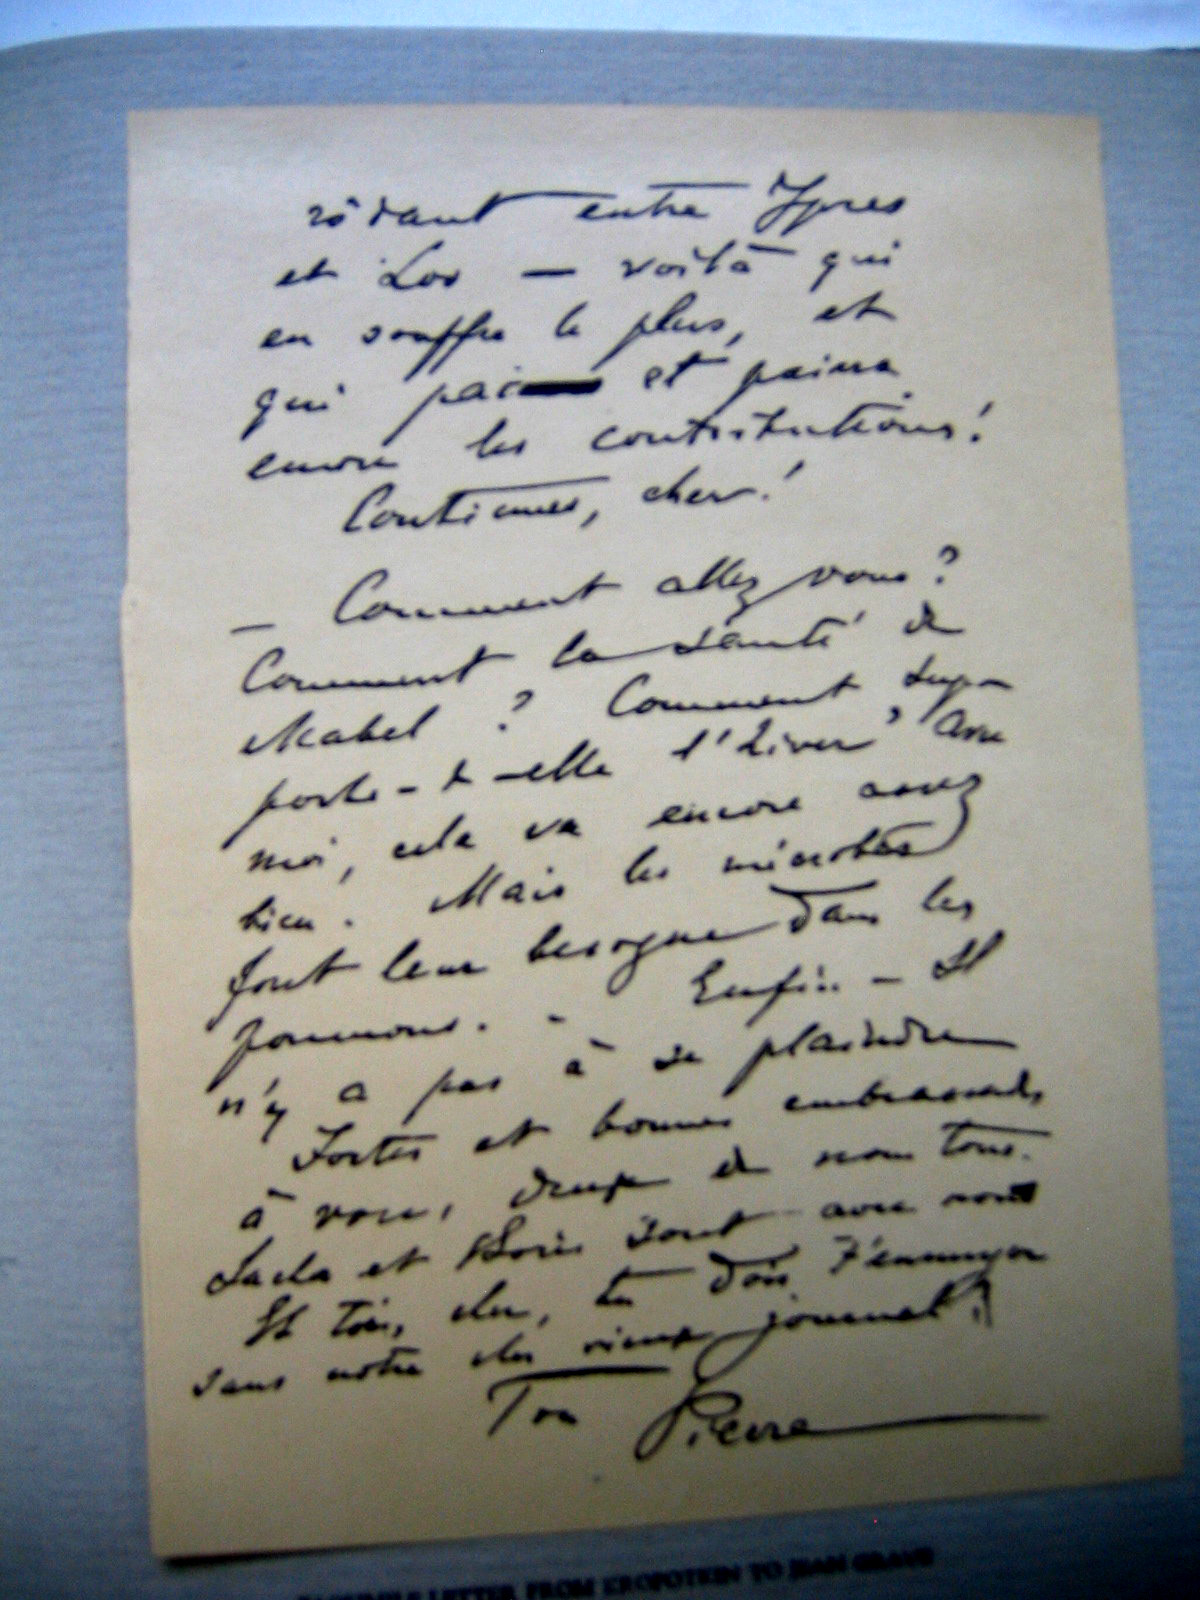 rôdant entre Ypres
et Loo — voilà qui
en souffre le plus, et
qui pai et paiera
encore les contributions!
Continues, cher!
— Comment allez vous?
Comment la santé de
Mabel ? Comment sup-
porte-t-elle l'hiver? Avec
moi, cela va encore assez
bien. Mais les microbes
font leur besogne dans les
poumons. - Enfin — Il
n'y a pas à se plaindre
Fortes et bonnes embrassades
à vous, deux de nous tous.
Sacha et Boris sont avec nous
Et toi, cher, tu dois t'ennuyer
sans notre cher vieux journal!
Ton Pierre
LETTER FROM KROPOTKIN TO JEAN GRAVE